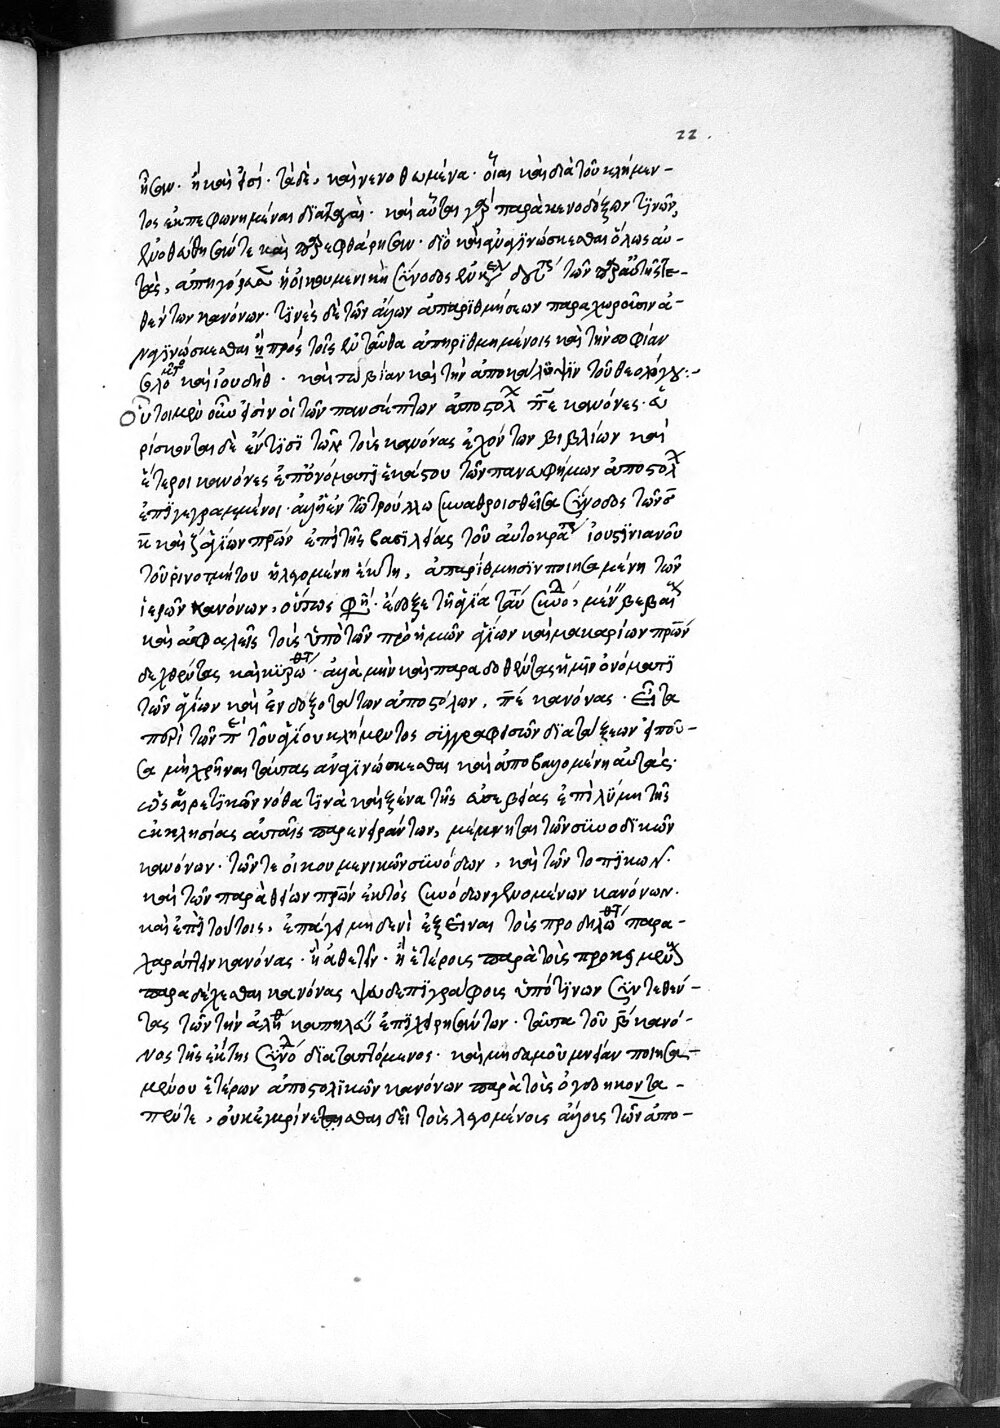 22.
ἦσαν. ἢ καὶ φσί. τάδε, καὶ νενοθωμένα. οἷαι καὶ διὰ τοῦ κλήμεν-
τος ἐκπεφωνημέναι διαταγαί. καὶ αὗται γὰρ παρὰ κενοδόξων τινῶν,
ἐνοθεύθησάν τε καὶ παρεφθάρησαν. διὸ καὶ ἀναγινώσκεσθαι ὅλως αὐ-
τὰς, ἀπηγόρευσεν ἡ οἰκουμενικὴ σύνοδος τῶν παρ' αὐτῆς τε-
θέντων κανόνων. τινὲς δὲ τῶν ἄλλων ἀπαριθμήσεων παραχωροῦσιν ἀ-
ναγινώσκεσθαι πρὸς τοῖς ἐνταῦθα ἀπηριθμημένοις καὶ τὴν σοφίαν
σολομῶντος καὶ ἰουδήθ. καὶ τωβίαν καὶ τὴν ἀποκάλυψιν τοῦ θεολόγου:-
Οὗτοι μὲν οὖν φσὶν οἱ τῶν πανσέπτων ἀποστόλ πε κανόνες. εὑ
ρίσκονται δὲ ἔν τισι τῶν τοὺς κανόνας ἐχόντων βιβλίων καὶ
ἕτεροι κανόνες ἐπ' ὀνόματι ἑκάστου τῶν πανευφήμων ἀποστόλ
ἐπιγεγραμμένοι. ἀλλ' ἡ ἐν τῷ τρούλλῳ συναθροισθεῖσα σύνοδος τῶν σ
κ καὶ ζ ἁγίων πρων ἐπὶ τῆς βασιλείας τοῦ αὐτοκρα ἰουστινιανοῦ
τοῦ ῥινοτμήτου ἡ λεγομένη ἕκτη, ἀπαρίθμησιν ποιησαμένη τῶν
ἱερῶν κανόνων, οὕτως φη. ἔδοξε τῇ ἁγία ταύ συνό, μέν βεβαί
καὶ ἀσφαλεῖς τοὺς ὑπὸ τῶν πρὸ ἡμῶν ἁγίων καὶ μακαρίων πρων
δεχθέντας καὶ κυρωθ. ἀλλὰ μὴν καὶ παραδοθέντας ἡμῖν ὀνόματι
τῶν ἁγίων καὶ ἐνδοξοτάτων ἀποστόλων, πέ κανόνας. Εἶτα
περὶ τῶν τοῦ ἁγίου κλήμεντος συγγραφεισῶν διατάξεων εἰποῦ-
σα μὴ χρῆναι ταύτας ἀναγινώσκεσθαι καὶ ἀποβαλομένη αὐτάς.
ὡς αἱρετικῶν νόθα τινὰ καὶ ξένα τῆς εὐσεβείας ἐπὶ λύμῃ τῆς
ἐκκλησίας αὐταῖς παρενειράντων, μέμνηται τῶν συνοδικῶν
κανόνων. τῶν τε οἰκουμενικῶν συνόδων, καὶ τῶν τοπικων.
καὶ τῶν παρὰ θείων πρων ἐκτὸς συνόδων γενομένων κανόνων.
καὶ ἐπὶ τούτοις, ἐπάγει μηδενὶ ἐξεῖναι τοὺς προδηλωθ παρα-
χαράττειν κανόνας. ἢ ἀθετεῖν. ἢ ἑτέρους παρὰ τοὺς προκειμεν
παραδέχεσθαι κανόνας ψευδεπιγράφους ὑπό τινων συντεθέν-
τας τῶν τὴν ἀλη καπηλεύ ἐπιχειρησάντων. ταῦτα τοῦ β κανό-
νος τῆς ἕκτης συνό διαταττόμενος. καὶ μηδαμοῦ μνείαν ποιησα-
μένου ἑτέρων ἀποστολικῶν κανόνων παρὰ τοὺς ὀγδοήκοντα-
πέντε, οὐκ ἐγκρίνεσθαι δεῖ τοὺς λεγομένους ἄλλους τῶν ἀπο-